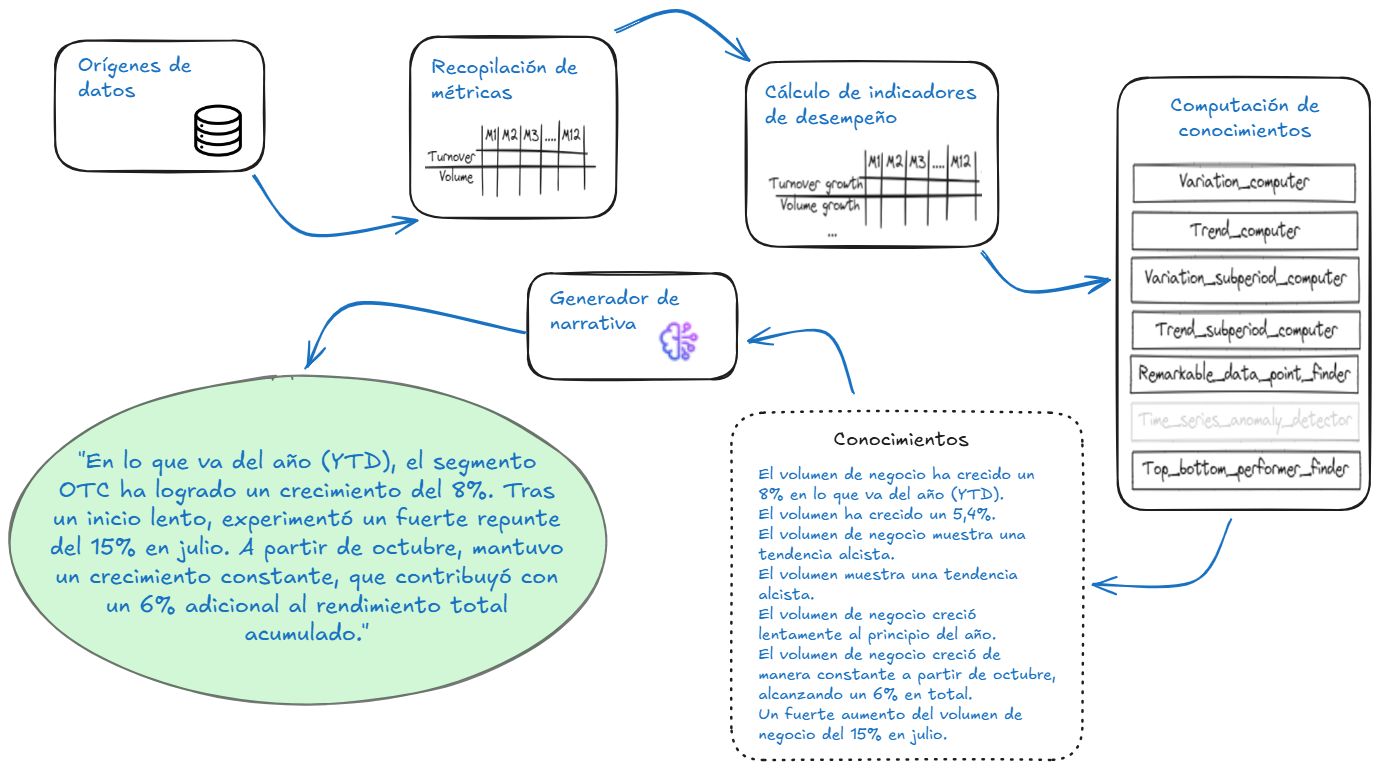 Orígenes de
datos
Recopilación de
métricas
M1 M2 M3 .... M12
Turnover
Volume
Cálculo de indicadores
de desempeño
M1 M2 M3 .... M12
Turnover growth
Volume growth
...
Computación de
conocimientos
Variation_computer
Trend_computer
Variation_subperiod_computer
Trend_subperiod_computer
Remarkable_data_point_finder
Time_series_anomaly_detector
Top_bottom_performer_finder
Conocimientos
El volumen de negocio ha crecido un
8% en lo que va del año (YTD).
El volumen ha crecido un 5,4%.
El volumen de negocio muestra una
tendencia alcista.
El volumen muestra una tendencia
alcista.
El volumen de negocio creció
lentamente al principio del año.
El volumen de negocio creció de
manera constante a partir de octubre,
alcanzando un 6% en total.
Un fuerte aumento del volumen de
negocio del 15% en julio.
Generador de
narrativa
"En lo que va del año (YTD), el segmento
OTC ha logrado un crecimiento del 8%. Tras
un inicio lento, experimentó un fuerte repunte
del 15% en julio. A partir de octubre, mantuvo
un crecimiento constante, que contribuyó con
un 6% adicional al rendimiento total
acumulado."